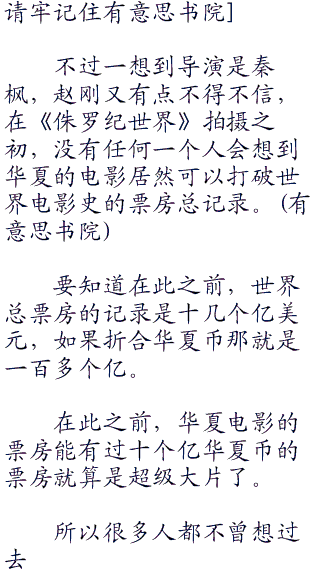 请牢记住有意思书院]
不过一想到导演是秦
枫，赵刚又有点不得不信，
在《侏罗纪世界》拍摄之
初，没有任何一个人会想到
华夏的电影居然可以打破世
界电影史的票房总记录。(有
意思书院)
要知道在此之前，世界
总票房的记录是十几个亿美
元，如果折合华夏币那就是
一百多个亿。
在此之前，华夏电影的
票房能有过十个亿华夏币的
票房就算是超级大片了。
所以很多人都不曾想过
去